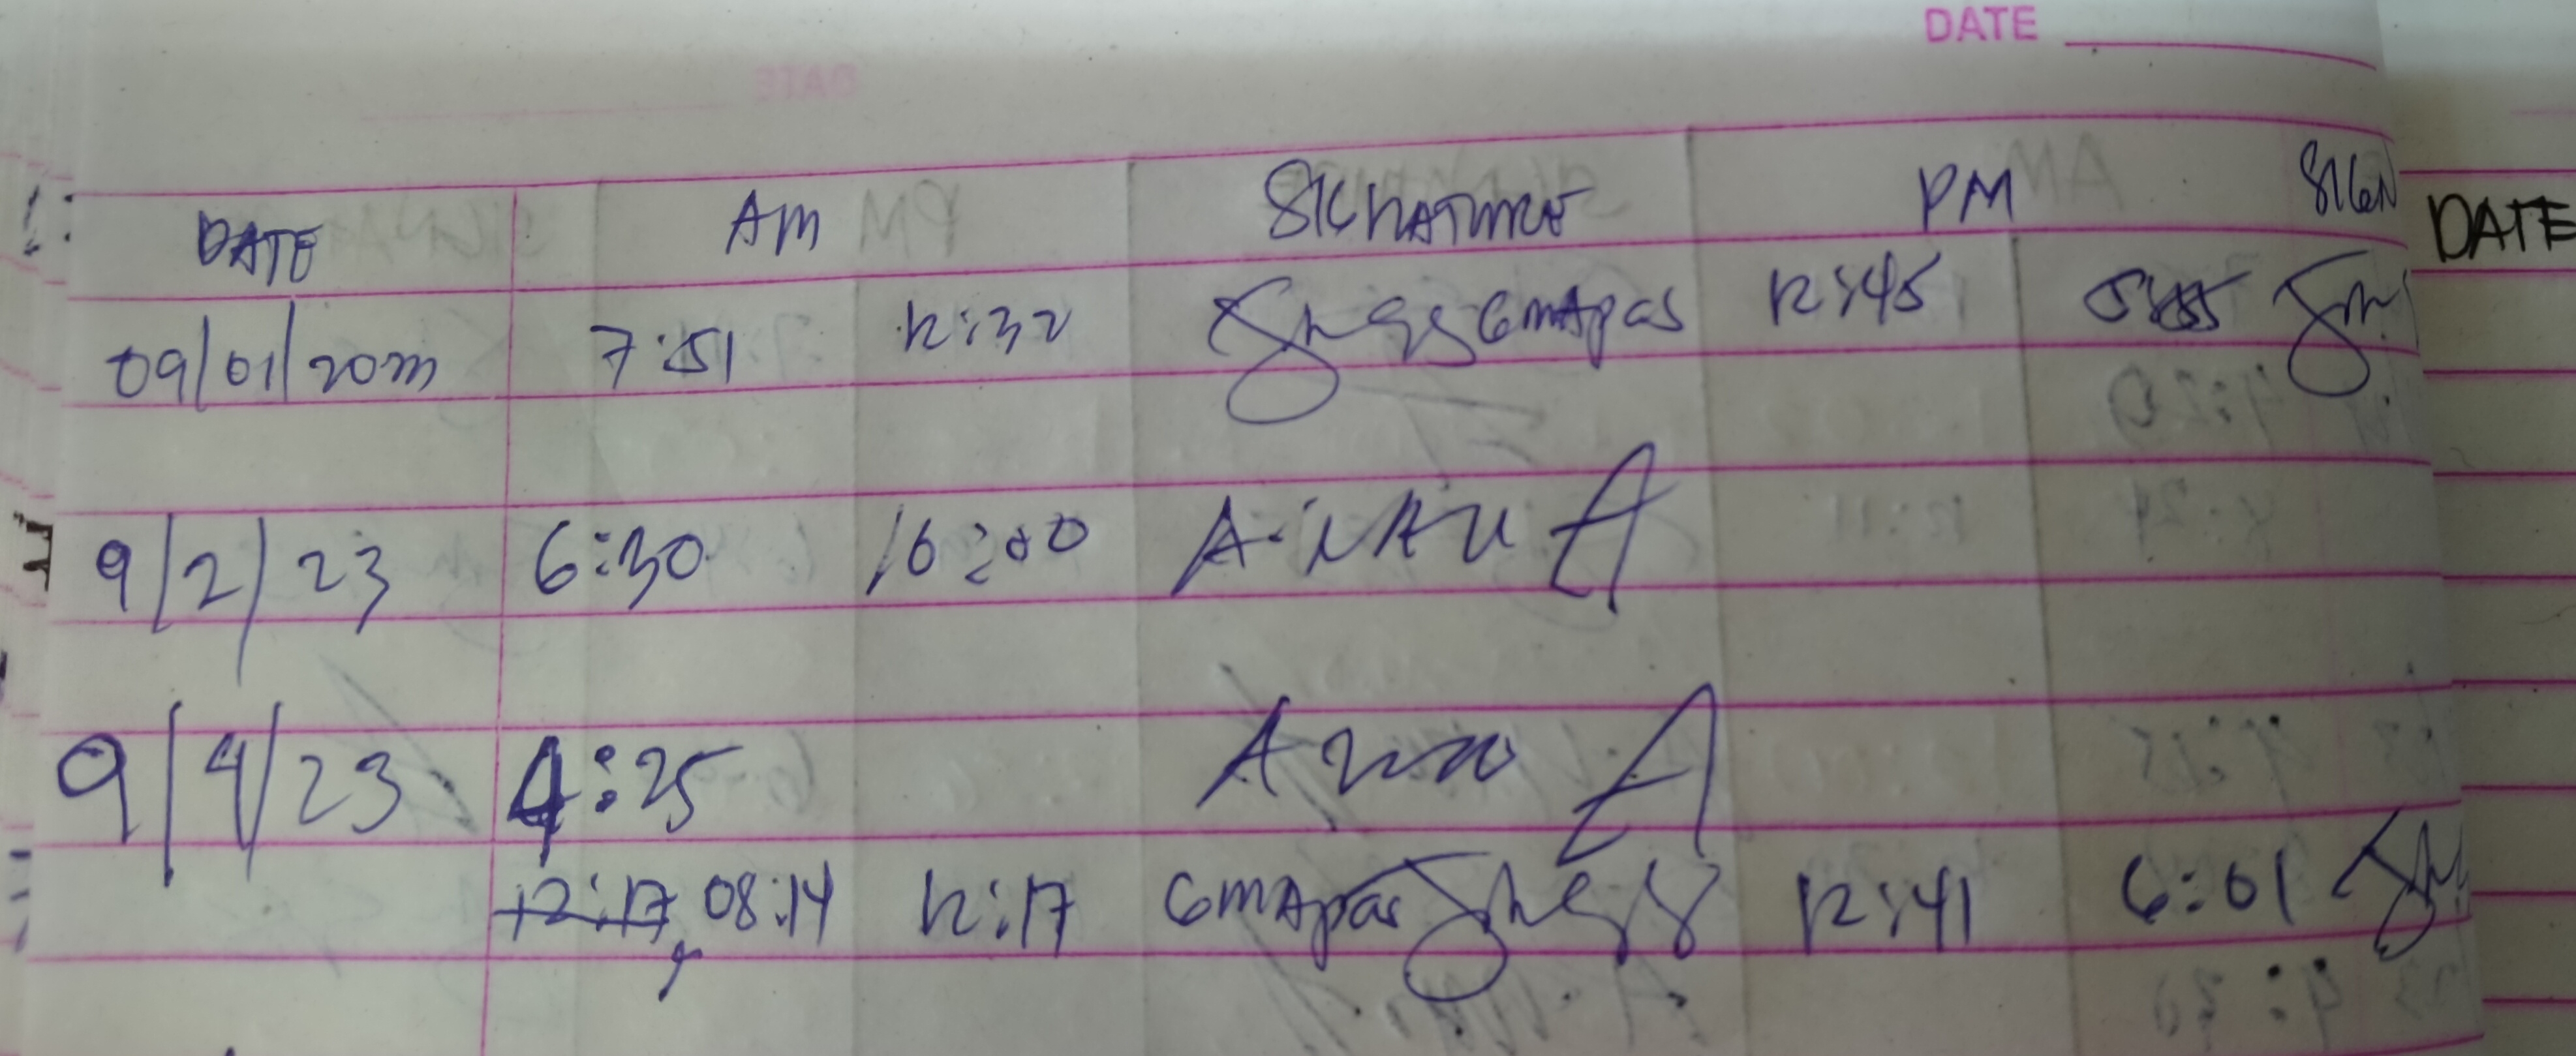 DATE
DATE AM SIGNATURE PM SIGN
DATE
09/01/20 7:51 12:32 Gmapas 12:45
9/2/23 6:30 10:00
9/4/23 4:25
12:17, 08:14 12:17 Gmapas 12:41 6:01